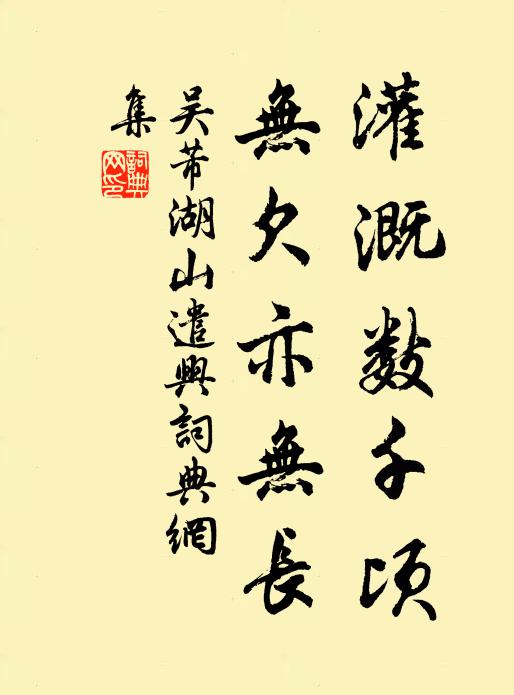 灌溉數千頃
無欠亦無長
吳芾湖山遣興詞典網
集
詞典網印